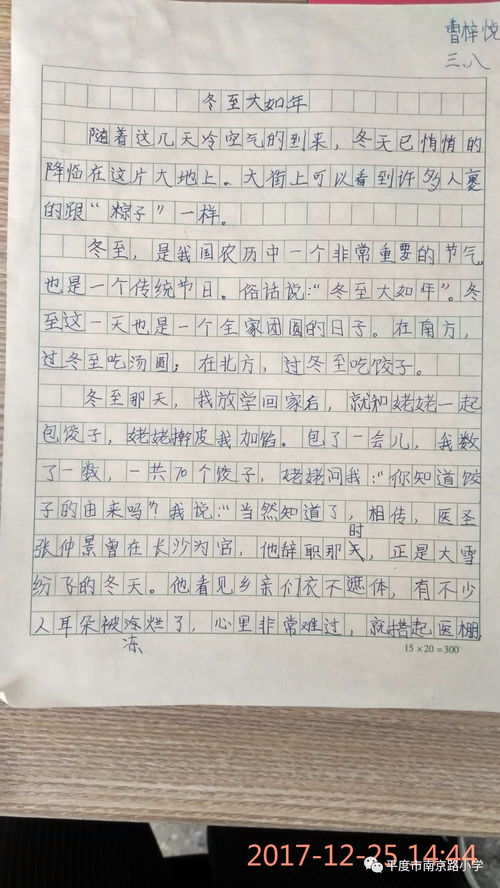 曹梓悦
三.八
冬至大如年
随着这几天冷空气的到来，冬天已悄悄的
降临在这片大地上。大街上可以看到许多人裹
的跟“粽子”一样。
冬至，是我国农历中一个非常重要的节气，
也是一个传统节日。俗话说：“冬至大如年”。冬
至这一天也是一个全家团圆的日子。在南方，
过冬至吃汤圆；在北方，过冬至吃饺子。
冬至那天，我放学回家后，就和姥姥一起
包饺子，姥姥擀皮我加馅。包了一会儿，我数
了一数，一共70个饺子，姥姥问我：“你知道饺
子的由来吗”？我说：“当然知道了，相传，医圣
时
张仲景曾在长沙为官，他辞职那天，正是大雪
纷飞的冬天。他看见乡亲们衣不遮体，有不少
人耳朵被冻烂了，心里非常难过，就搭起医棚，
冻
15×20=300
2017-12-25 14:44
平度市南京路小学